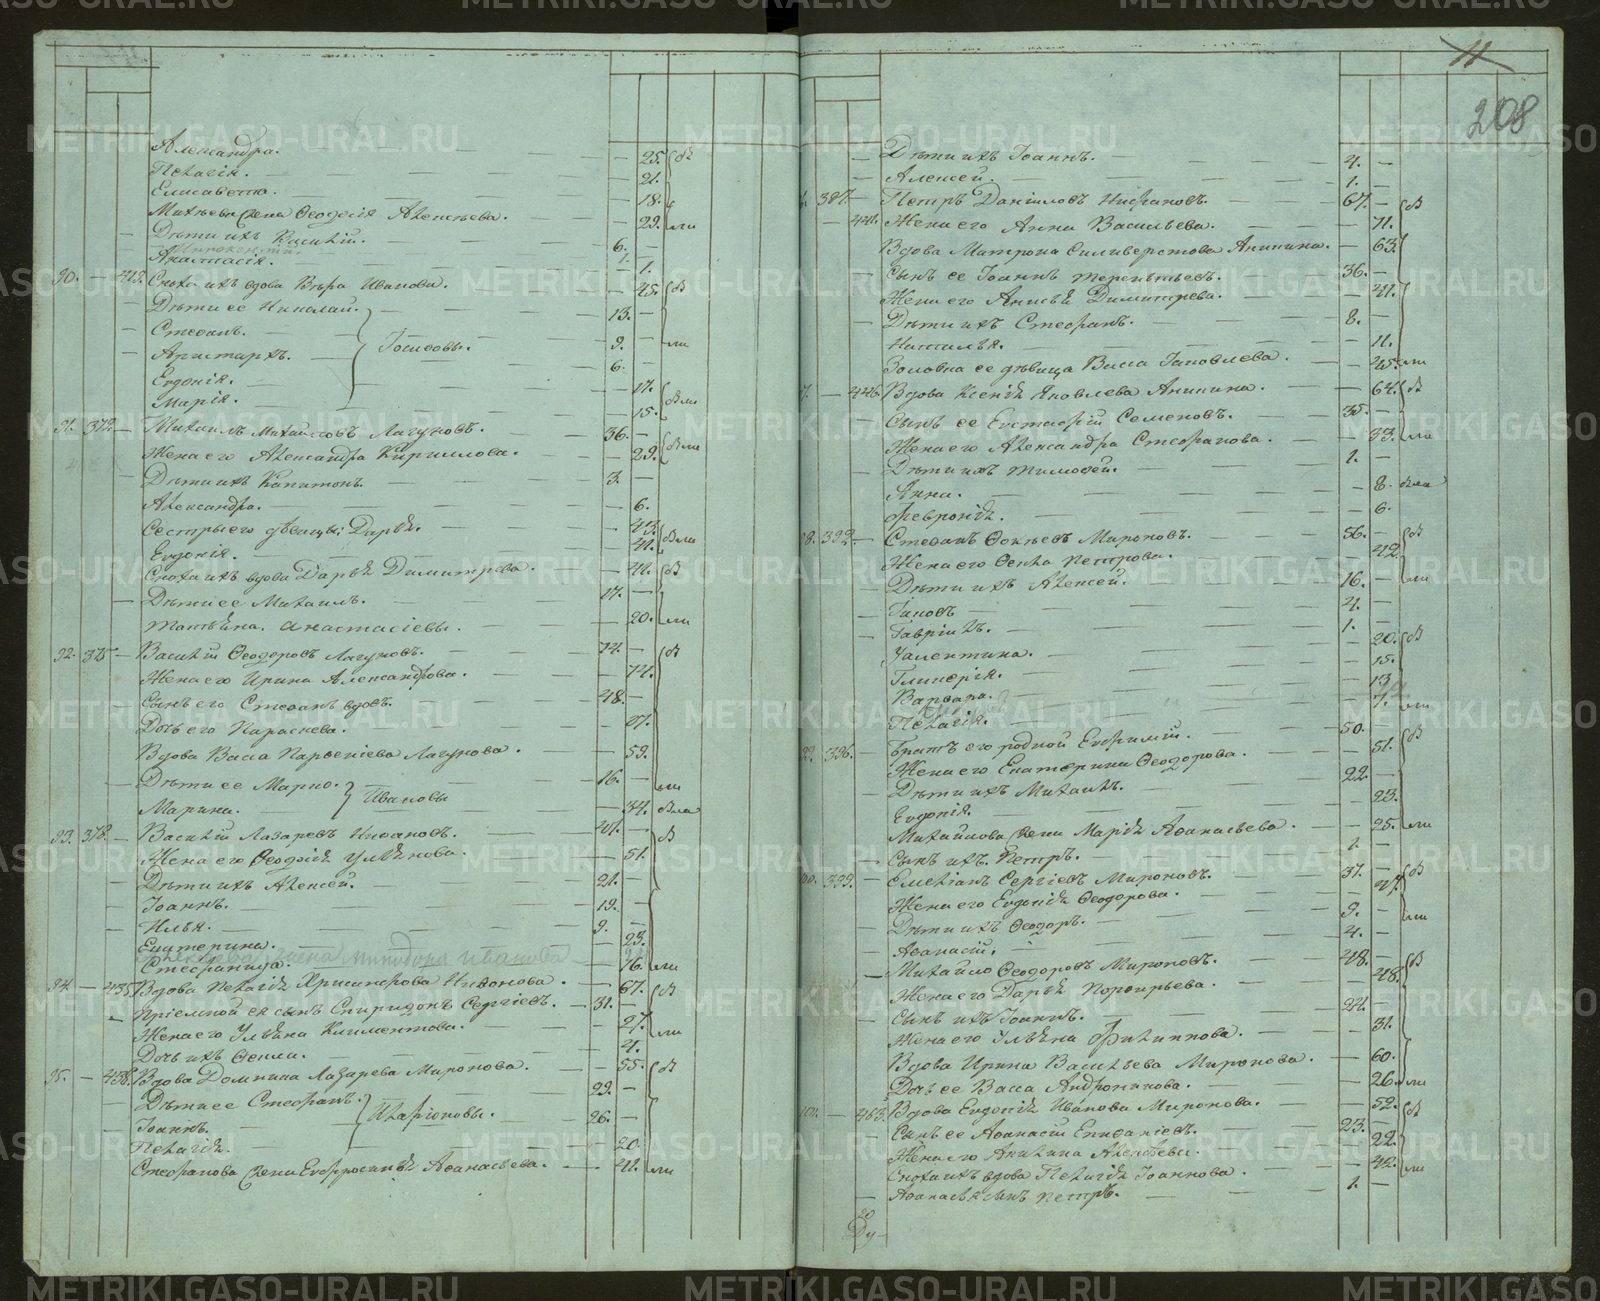 Александра. 25. в
Пелагія. 21.
Елисавета. 18.
Матѳеева жена Ѳеодосія Алексѣева. 29. ли
Дѣти ихъ Василій. 6.
Иннокентій. 1.
Анастасія. 1.
90. 413. Сноха ихъ вдова Вѣра Иванова. 45. в
Дѣти ее Николай. 13.
Стефанъ. 9. ли
Іосифовы.
Аристархъ. 6.
Евдокія. 17.
Марія. 15. в ли
91. 372. Михаилъ Михайловъ Лагуновъ. 36.
Жена его Александра Кириллова. 29. в ли
Дѣти ихъ Капитонъ. 3.
Александра. 6.
Сестры его дѣвицы: Дарья. 43. в ли
Евдокія. 41.
Сноха ихъ вдова Дарья Димитрева. 41. в
Дѣти ее Михаилъ. 17.
Татьяна. Анастасіевы. 20. ли
92. 375. Василій Ѳеодоровъ Лагуновъ. 74. в
Жена его Ирина Александрова. 74.
Сынъ его Стефанъ вдовъ. 48.
Дочь его Параскева.
Вдова Васса Парѳеніева Лагунова. 59.
Дѣти ее Марко. 16. ли
Ивановы
Марина. 34. в ли
93. 378. Василій Лазаревъ 47. в
Жена его Ѳеодосія Ульянова. 51.
Дѣти ихъ Алексей. 21.
Іоаннъ. 19.
Илья. 9.
Екатерина. 23.
жена Иванова
Стефанида. 16. ли
94. 435. Вдова Пелагія Хрисанфова 67. в
Пріемной ея сынъ Спиридонъ Сергіевъ. 31.
Жена его Ульяна Климентова. 27. ли
Дочь ихъ Ѳекла. 4.
95. 438. Вдова Домника Лазарева Миронова. 55. в
Дѣти ее Стефанъ. 29.
Іоаннъ. 26.
Иларіоновы.
Пелагія. 20.
Стефанова жена Евфросинья Аѳанасьева. 41. ли
11
208
Дѣти ихъ Іоаннъ. 4.
Алексей. 1.
387. Петръ Даніиловъ 67. в
441. Жена его Анна Васильева. 71.
Вдова Матрона Силиверстова Аникина. 63.
Сынъ ее Іоаннъ Терентьевъ. 36.
Жена его Анисья Димитрева. 41.
Дѣти ихъ Стефанъ. 8.
Наталья. 11.
Золовка ее дѣвица Васса Іаковлева. 45. ли
446. Вдова Ксенія Яковлева Аникина. 64. в
Сынъ ее Евстафій Семеновъ. 35.
Жена его Александра Стефанова. 33. ли
Дѣти ихъ Тимофей. 1.
Анна. 8. в ли
Февронія. 6.
98. 392. Стефанъ Мироновъ. 56. в
Жена его Ѳекла Петрова. 42. ли
Дѣти ихъ Алексей. 16.
Іаковъ 4.
Гавріилъ. 1.
Валентина. 20. в
Гликерія. 15.
Варвара. 13.
Пелагія. 7. ли
99. 396. Братъ его родной Евфимій. 50. в
Жена его Екатерина Ѳеодорова. 51.
Дѣти ихъ Михаилъ. 22.
Евдокія. 23.
Михайлова жена Марія Аѳанасьева. 25. ли
Сынъ ихъ Петръ. 1.
100. 399. Емельянъ Сергіевъ Мироновъ. 37. в
Жена его Евдокія Ѳеодорова. 37.
Дѣти ихъ Ѳеодоръ. 9. ли
Аѳанасій. 4.
Михайло Ѳеодоровъ Мироновъ. 48. в
Жена его Дарья Порфирьева. 48.
Сынъ ихъ Іоаннъ. 24.
Жена его Ульяна Филиппова. 31.
Вдова Ирина Васильева Миронова. 60.
Дочь ее Васса Андроникова. 26. ли
101. 463. Вдова Евдокія Иванова Миронова. 52. в
Сынъ ее Аѳанасій Епифаніевъ. 23.
Жена его Акилина Алексѣева. 22.
Сноха ихъ вдова Пелагія Іоаннова. 42. ли
Аѳанасья сынъ Петръ. 1.
METRIKI.GASO-URAL.RU